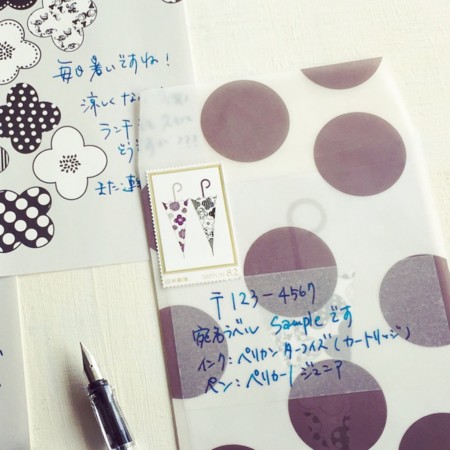 毎日暑いですね！
涼しくな
ランチ
どう
また連
82
〒123-4567
宛名ラベル Sampleです
インク：ペリカン ターコイズ（カートリッジ）
ペン：ペリカーノジュニア